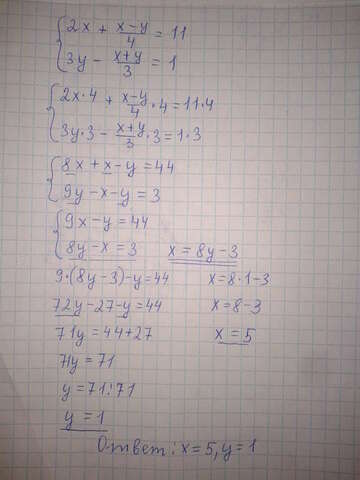 2x + (x-y)/4 = 11
3y - (x+y)/3 = 1
2x·4 + (x-y)/4 · 4 = 11·4
3y·3 - (x+y)/3 · 3 = 1·3
8x + x - y = 44
9y - x - y = 3
9x - y = 44
8y - x = 3 x = 8y - 3
9·(8y-3) - y = 44 x = 8·1-3
72y - 27 - y = 44 x = 8-3
71y = 44+27 x = 5
71y = 71
y = 71:71
y = 1
Ответ: x=5, y=1